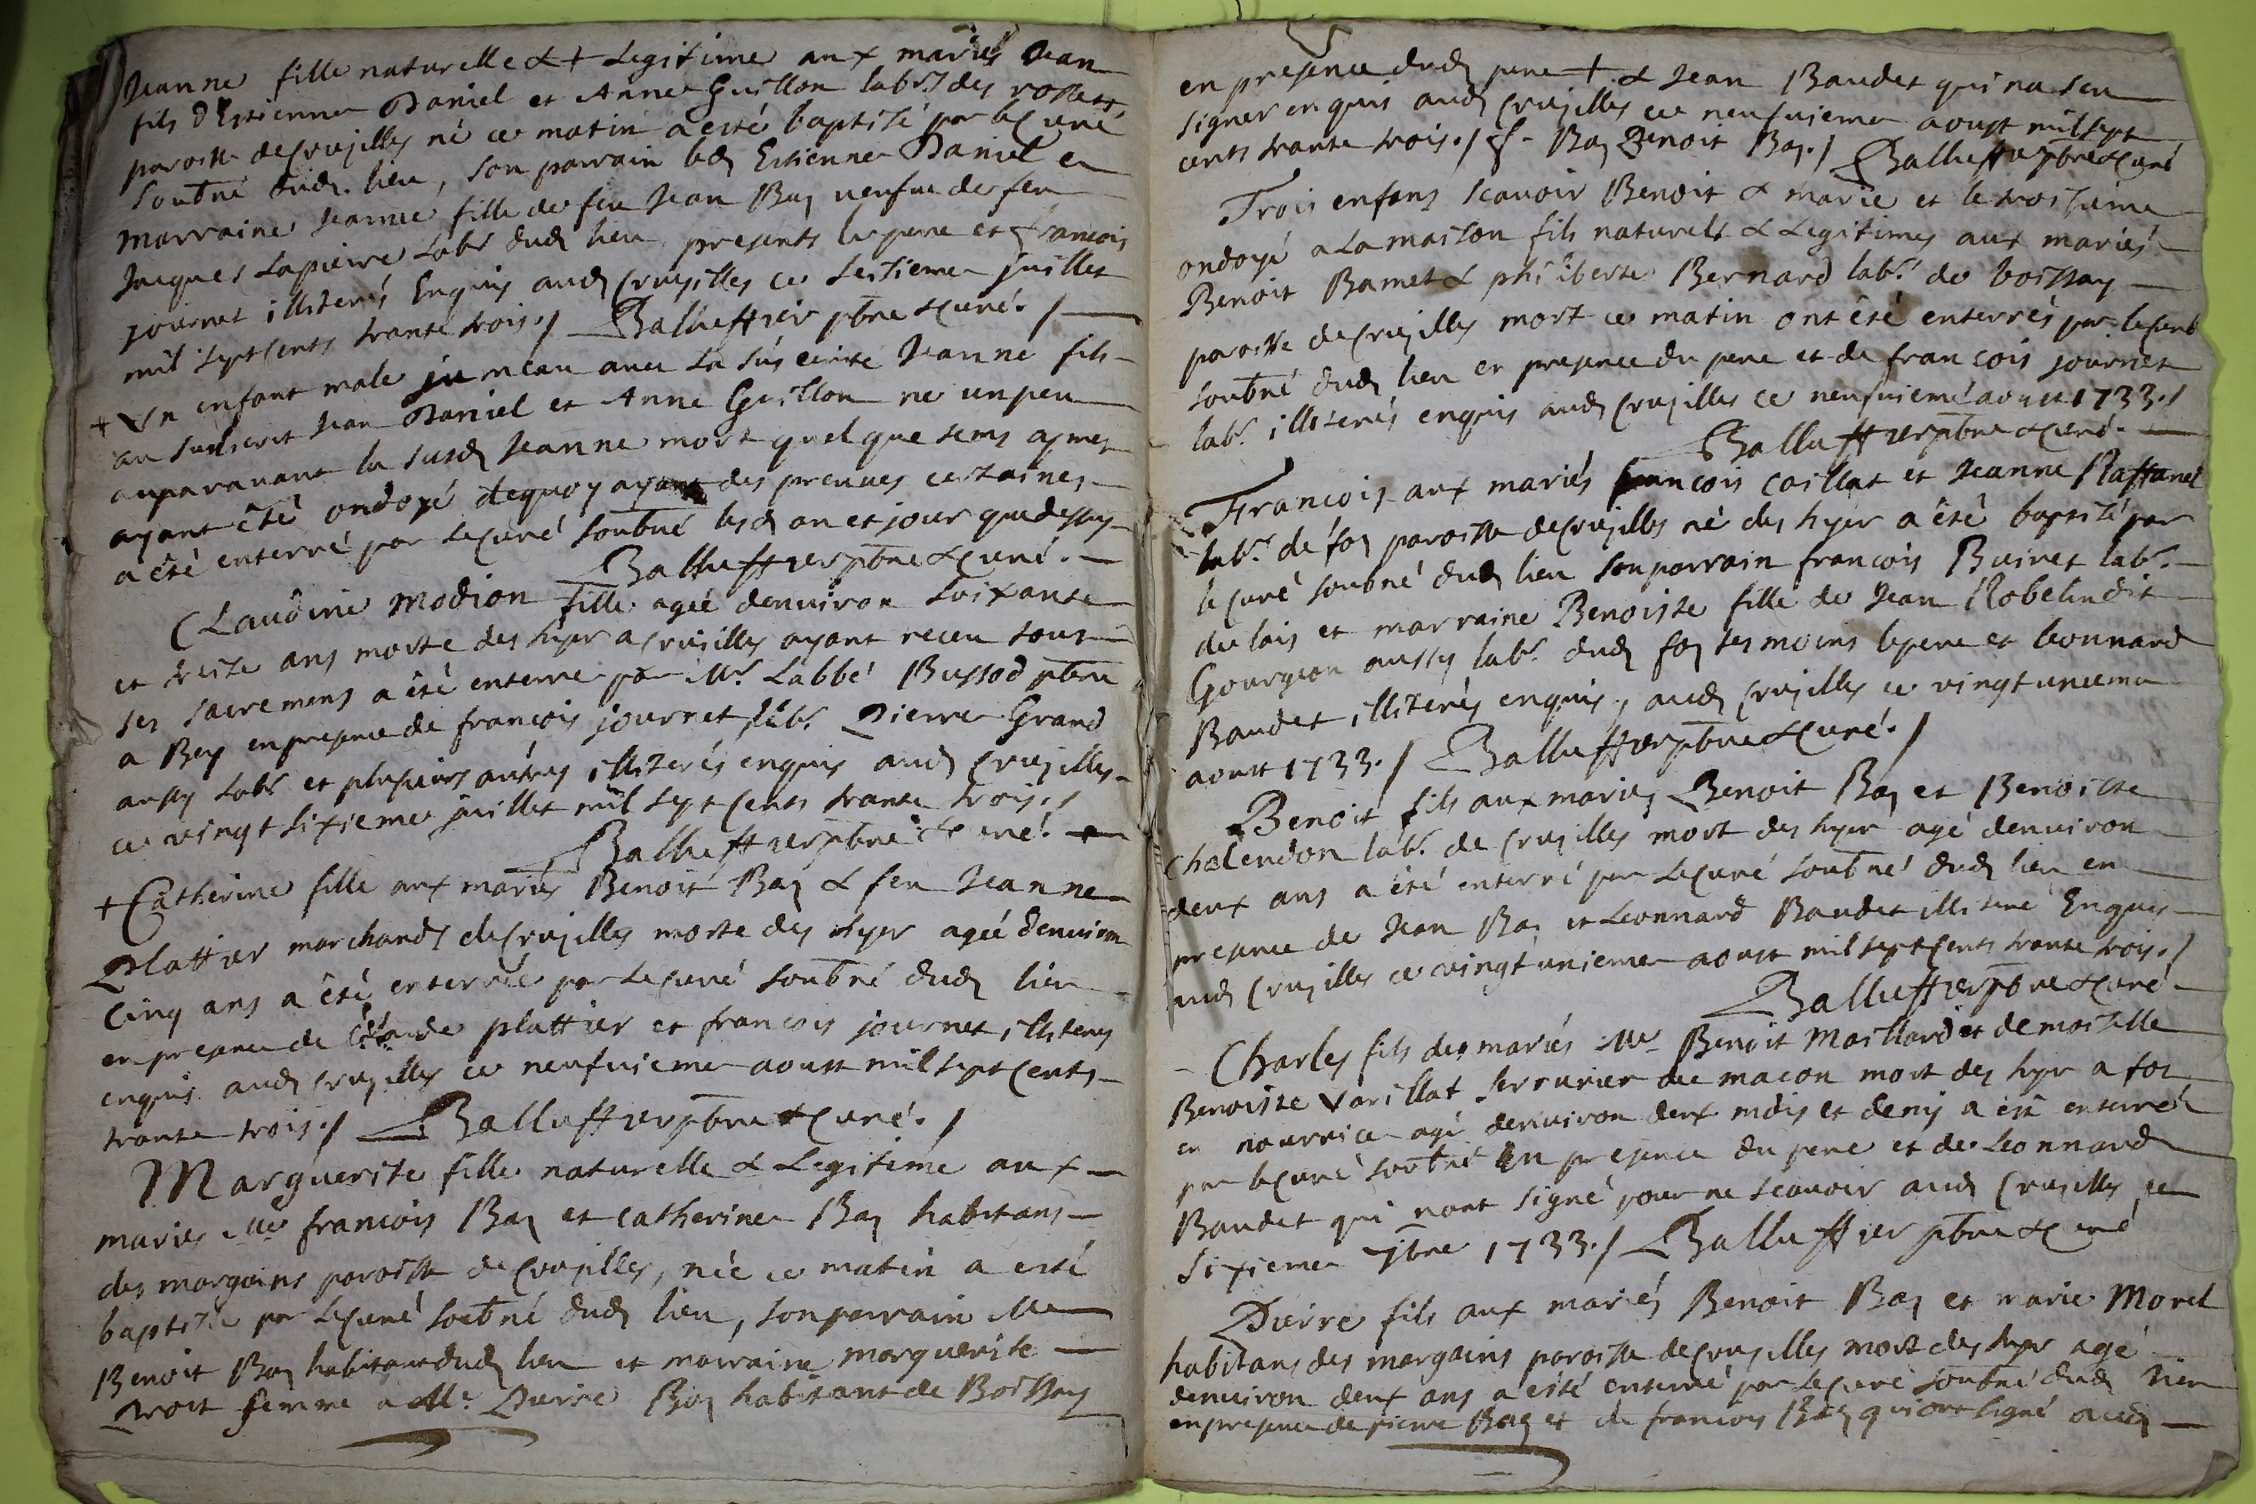 Jeanne fille naturelle & + Legitime aux mariés Jean
fils d'Estienne Daniel et Anne Guillon labr des
paroisse de Crusilles né ce matin a esté baptisé par le Curé
soubné dud lieu, son parrain led Estienne Daniel et
marraine Jeanne fille de feu Jean Bay veufue de feu
Jacques Lapierre Labr dud lieu presents le pere et françois
journet illiterés Enquis aud Crusilles ce seisieme juillet
mil sept Cents trante trois./ Balluffier pbre & Curé./
+ Un enfant male jumeau auec La sus ecrite Jeanne fils
au susecrit Jean Daniel et Anne Guillon né un peu
auparauant la susd Jeanne mort quelque tems apres
ayant êté ondoyé dequoy ayant des preuues certaines
a êté enterré par le Curé soubné lesd an et jour que dessus
Balluffier pbre & Curé.
Claudine Modion fille ageé denuiron soixante
et treise ans morte des hyer a Crusilles ayant receu tous
ses sacremens a êté enterreé par Mr. Labbé Bussod pbre
a Bey en presence de françois journet labr. Pierre Grand
aussy labr et plusieurs autres illiterés enquis aud Crusilles
ce vingt sixieme juillet mil sept Cents trante trois./
Balluffier pbre & Curé.
+ Catherine fille aux mariés Benoit Bay & feu Jeanne
Plattier marchands de Crusilles morte des hyer ageé denuiron
Cinq ans a êté enterreé par le Curé soubné dud lieu
en presence de Claude plattier et francois journet illiterés
enquis aud Crusilles ce neufuieme aoust mil sept Cents
trante trois./ Balluffier pbre & Curé./
Marguerite fille naturelle & Legitime aux
mariés Me francois Bay et Catherine Bay habitans
des margoins paroisse de Crusilles, née ce matin a esté
baptiseé par le Curé soubné dud lieu, son parrain Me
Benoit Bay habitant dud lieu et marraine marguerite
Proit femme a Me. Pierre Bay habitant de Boissay
en presence dud pere + & Jean Baudet qui na sceu
signer enquis aud Crusilles ce neufuieme aoust mil sept
cents trante trois./ f. Bay Benoit Bay./ Balluffier pbre & Curé
Trois enfans scauoir Benoit & marie et le troisieme
ondoyé a La maison fils naturels & Legitimes aux mariés
Benoit Bamet & philiberte Bernard labr. de boissay
paroisse de Crusilles mort ce matin ont êté enterrés par le Curé
soubné dud lieu en presence du pere et de francois journet
labr. illiterés enquis aud Crusilles ce neufuieme aoust 1733./
Balluffier pbre & Curé.
Francois aux mariés francois Caillat et Jeanne Raffanel
labr. de foy paroisse de Crusilles né des hyer a êté baptisé par
le Curé soubné dud lieu son parrain francois Buiret labr.
du lais et marraine Benoiste fille de Jean Robelin dit
Gourgeon aussy labr. dud foy tesmoins le pere et leonnard
Baudet illiterés enquis, aud Crusilles ce vingt unieme
aoust 1733./ Balluffier pbre & Curé./
Benoit fils aux mariés Benoit Bay et Benoiste
Chalendon labr. de Crusilles mort des hyer agé denuiron
deux ans a êté enterré par le Curé soubné dud lieu en
presence de Jean Bay et Leonnard Baudet illiteré Enquis
aud Crusilles ce vingt unieme aoust mil sept Cents trante trois./
Balluffier pbre & Curé
Charles fils des mariés Me. Benoit Maillard et demoiselle
Benoiste Varillat serrurier de macon mort des hyer a foi
en nourrice agé denuiron deux mois et demy a êté enterré
par le Curé soubné En presence du pere et de Leonnard
Baudet qui n'ont signé pour ne scauoir aud Crusilles ce
sixieme 7bre 1733./ Balluffier pbre & Curé
Pierre fils aux mariés Benoit Bay et marie Morel
habitans des margoins paroisse de Crusilles mort des hyer agé
denuiron deux ans a esté enterré par le Curé soubné dud lieu
en presence de pierre Bay et de francois Bay qui ont signé aud